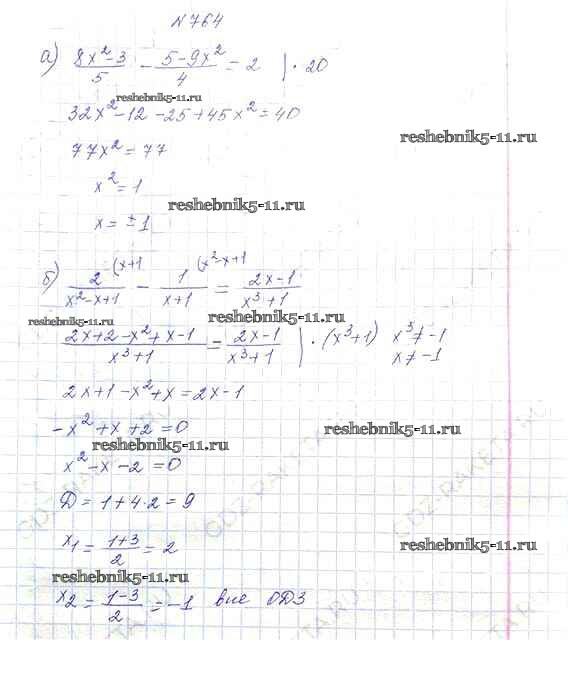 №764
а) (8x²-3)/5 - (5-9x²)/4 = 2 | · 20
reshebnik5-11.ru
32x²-12-25+45x²=40
reshebnik5-11.ru
77x²=77
x²=1
reshebnik5-11.ru
x=±1
б) 2/(x²-x+1) (x+1 - 1/(x+1) (x²-x+1 = (2x-1)/(x³+1)
reshebnik5-11.ru
reshebnik5-11.ru
(2x+2-x²+x-1)/(x³+1) = (2x-1)/(x³+1) | · (x³+1) x³≠-1
x≠-1
2x+1-x²+x=2x-1
-x²+x+2=0
reshebnik5-11.ru
reshebnik5-11.ru
x²-x-2=0
Д=1+4·2=9
x₁=(1+3)/2=2
reshebnik5-11.ru
reshebnik5-11.ru
x₂=(1-3)/2=-1 вне ОДЗ
GDZ-RAKETA.RU
GDZ-RAKETA.RU
GDZ-RAKETA.RU